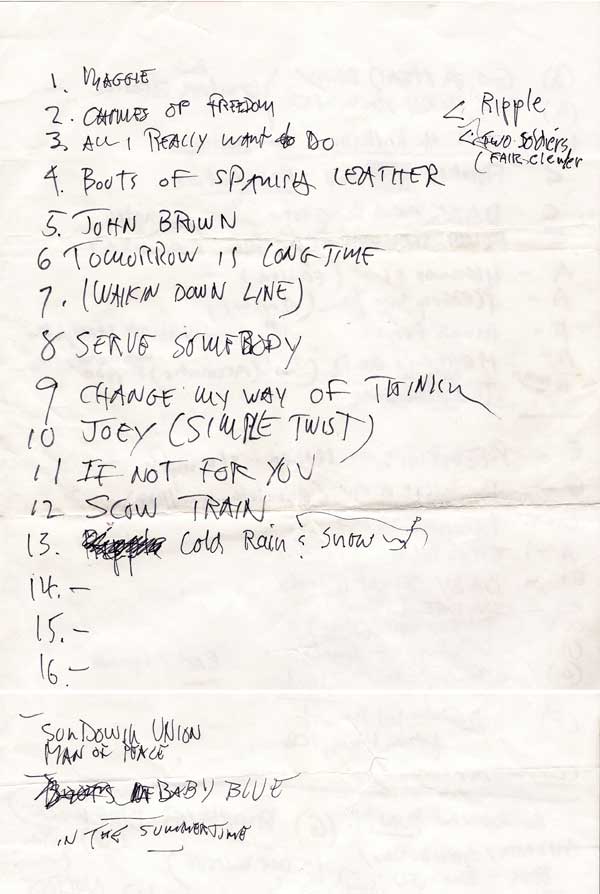 1. MAGGIE
2. CHIMES OF FREEDOM
3. ALL I REALLY WANT to DO
4. BOOTS OF SPANISH LEATHER
5. JOHN BROWN
6 TOMORROW IS LONG TIME
7. (WALKIN DOWN LINE)
8 SERVE SOMEBODY
9 CHANGE MY WAY OF THINKIN
10 JOEY (SIMPLE TWIST)
11 IF NOT FOR YOU
12 SLOW TRAIN
13. Cold Rain & Snow
14. –
15. –
16. –
Ripple
TWO Soldiers
(FAIR
SUNDOWN UNION
MAN OF PEACE
BABY BLUE
IN THE SUMMERTIME